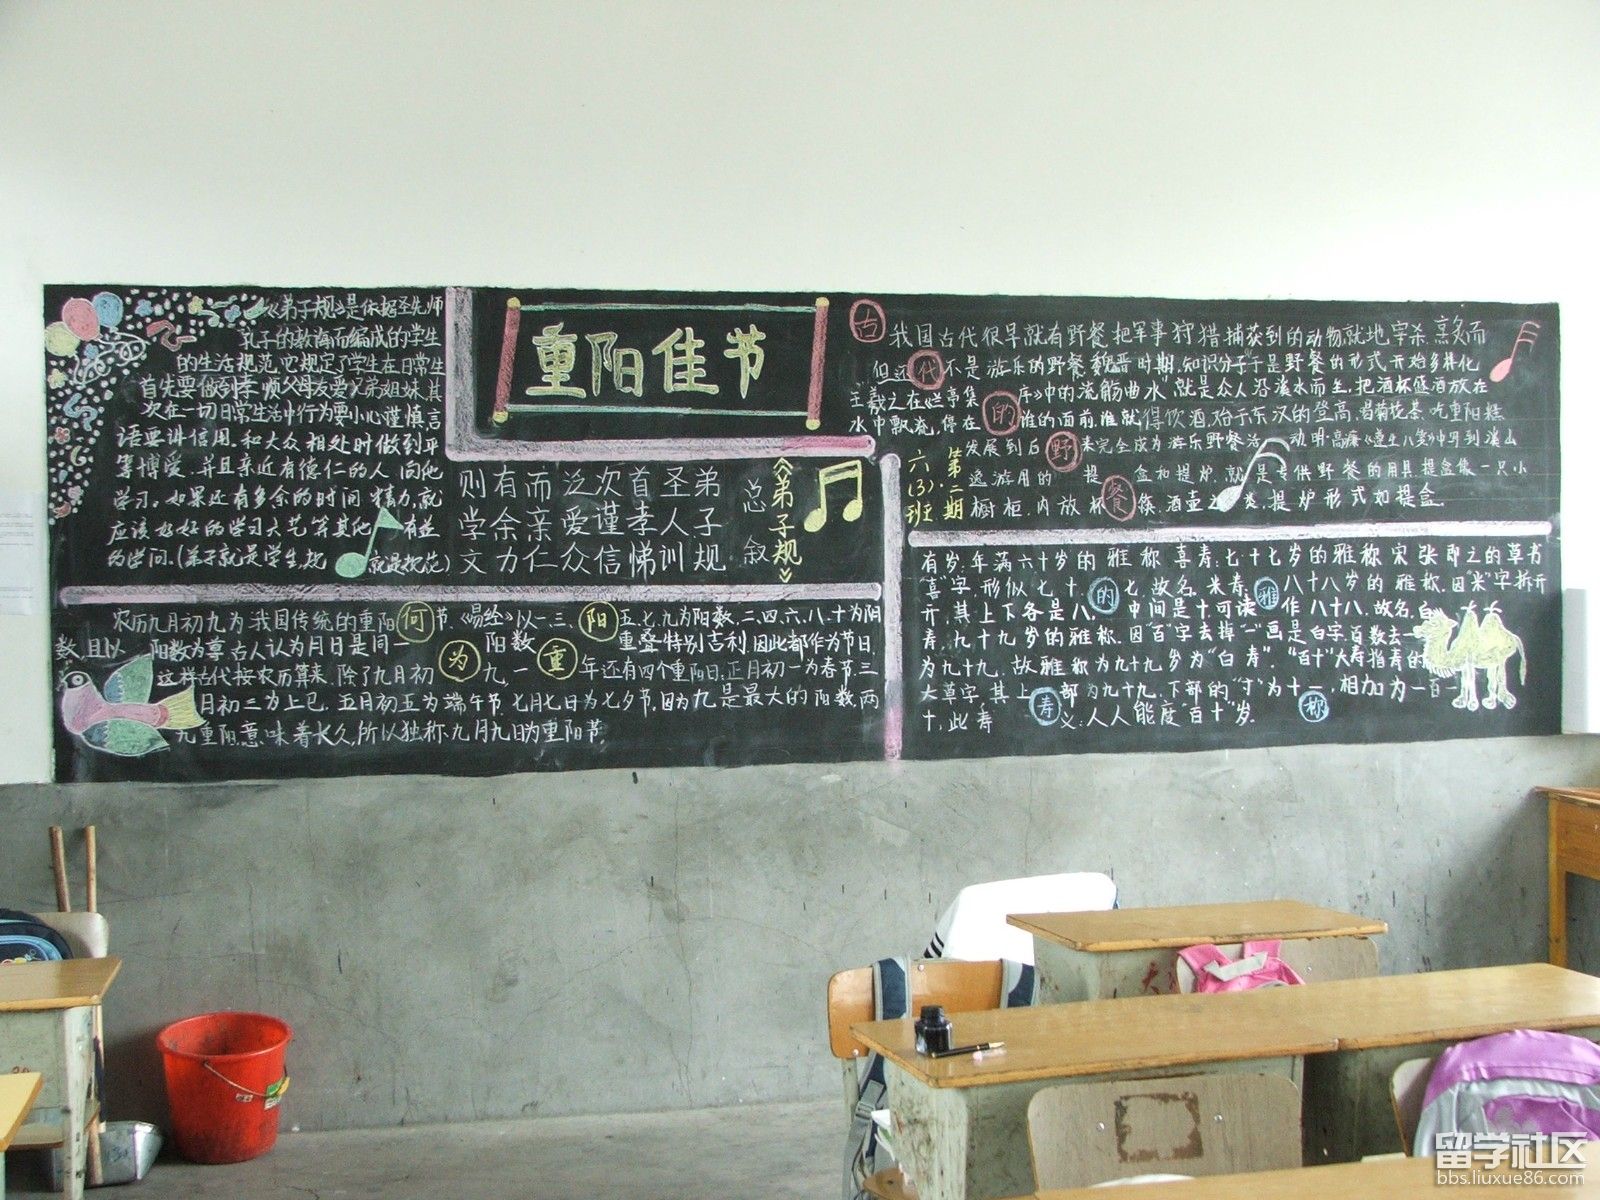 重阳佳节
《弟子规》是依据圣先师
孔子的教诲而编成的学生
的生活规范.它规定了学生在日常生
首先要做到孝顺父母友爱兄弟姐妹.其
次在一切日常生活中行为要小心谨慎言
语要讲信用.和大众相处时做到平
等博爱.并且亲近有德仁的人向他
学习.如果还有多余的时间精力,就
应该好好的学习六艺等其他有益
的学问.(弟子就是学生,规就是规范)
则有而泛次首圣弟
学余亲爱谨孝人子
文力仁众信悌训规
总叙
《弟子规》
农历九月初九为我国传统的重阳节.《易经》以一.三、五.七.九为阳数.二.四.六.八.十为阴
数.且以阳数为尊.古人认为月日是同一阳数重叠特别吉利.因此都作为节日.
这样古代按农历算来.除了九月初九.一年还有四个重阳日.正月初一为春节.三
月初三为上巳.五月初五为端午节.七月七日为七夕节.因为九是最大的阳数,两
九重阳.意味着长久,所以独称.九月九日为重阳节.
何为重阳
古代的野餐
我国古代很早就有野餐.把军事狩猎捕获到的动物就地宰杀.烹炙而
但还不是游乐的野餐.魏晋时期,知识分子于是野餐的形式开始多样化
王羲之在《兰亭集序》中的流觞曲水"就是众人沿溪水而坐.把酒杯盛酒放在
水中飘流,停在谁的面前.谁就得饮酒.始于东汉的登高.赏菊花茶.吃重阳糕
发展到后来完全成为游乐野餐活动.明·高濂《遵生八笺》中写到溪山
逸游用的提盒和提炉.就是专供野餐的用具提盒像一只小
橱柜.内放杯筷.酒壶之类.提炉形式如提盒.
六(3)班
第二期
有岁:年满六十岁的雅称.喜寿:七十七岁的雅称宋张即之的草书
"喜"字.形似七十七.故名.米寿.八十八岁的雅称.因"米"字拆开
开.其上下各是八,中间是十可读作八十八.故名.白
寿.九十九岁的雅称.因"百"字去掉"一"画是白字.百数去一
为九十九.故雅称为九十九岁为"白寿"."百十"大寿指寿的
大草字,其上部为九十九.下部的"寸"为十一.相加为一百一
十,此寿义:人人能度"百十"岁.
的雅寿称
留学社区
bbs.liuxue86.com